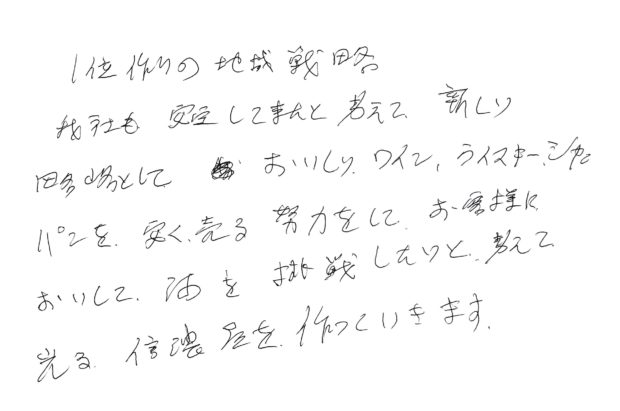 1位作りの地域戦略
我社も安定してきたと考えて 新しい
略として おいしい、ワイン、ウイスキー、シャン
パンを、安く、売る 努力をして、お客様に
おいして、酒を 挑戦したいと、考えて
光る、信濃屋を、作っていきます。